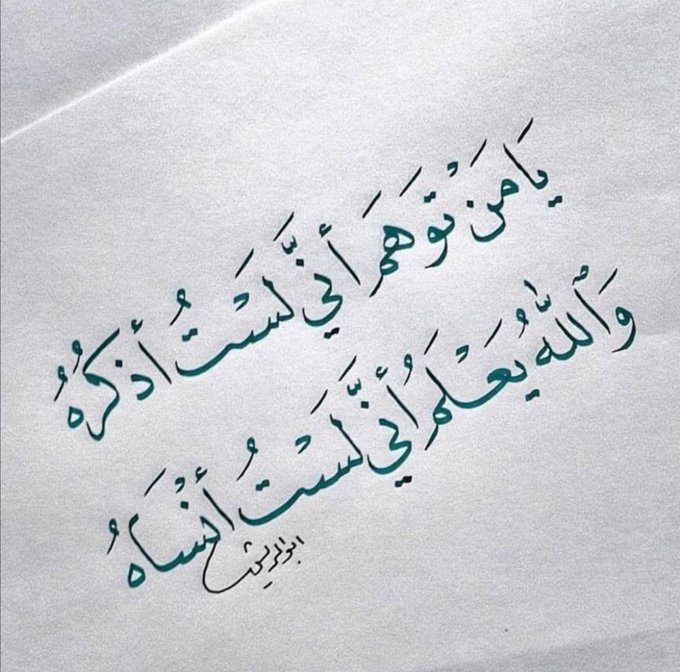 يَا مَنْ تَوَهَّمَ أَنِّي لَسْتُ أَذْكُرُهُ
وَٱللّٰهُ يَعْلَمُ أَنِّي لَسْتُ أَنْسَاهُ